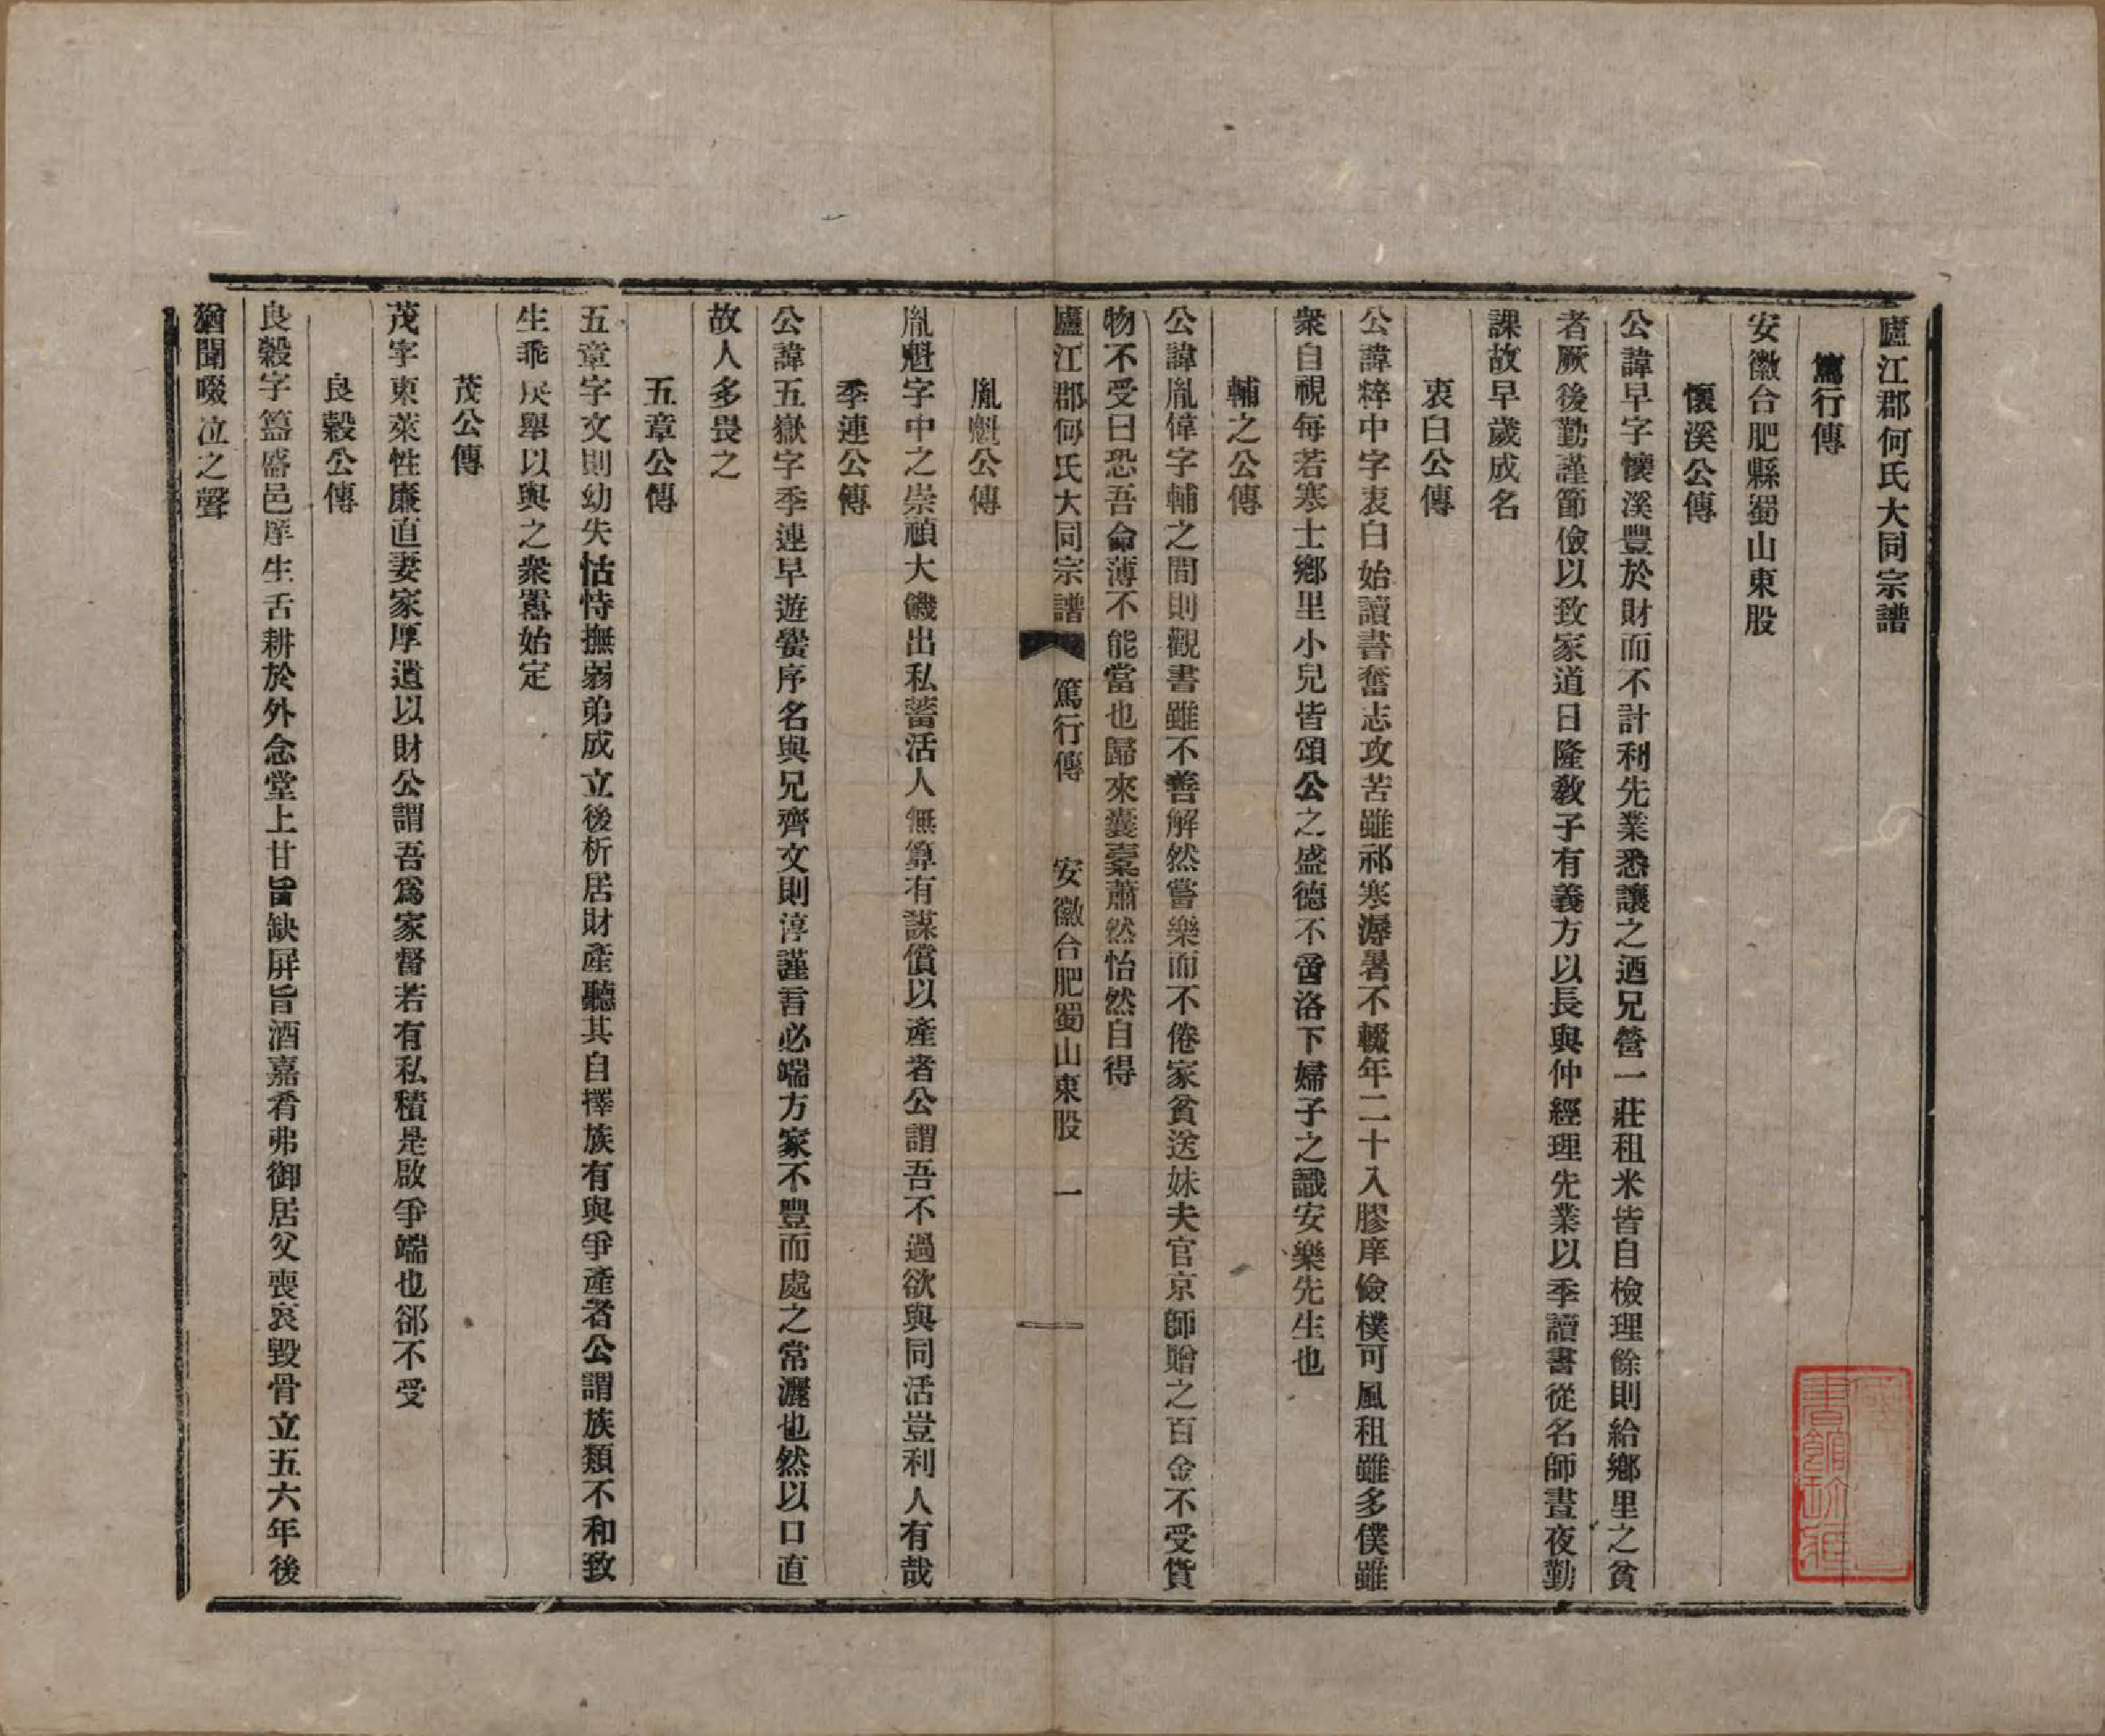 廬江郡何氏大同宗譜
篤行傳
安徽合肥縣蜀山東股
懷溪公傳
公諱早字懷溪豐於財而不計利先業悉讓之迺兄營一莊租米皆自檢理餘則給鄉里之貧
者厥後勤謹節儉以致家道日隆敎子有義方以長與仲經理先業以季讀書從名師晝夜勤
課故早歲成名
衷白公傳
公諱粹中字衷白始讀書奮志攻苦雖祁寒溽暑不輟年二十入膠庠儉樸可風租雖多僕雖
衆自視每若寒士鄉里小兒皆頌公之盛德不啻洛下婦子之識安樂先生也
輔之公傳
公諱胤偉字輔之間則觀書雖不善解然嘗樂而不倦家貧送妹夫官京師贈之百金不受貨
物不受曰恐吾命薄不能當也歸來囊橐蕭然怡然自得
廬江郡何氏大同宗譜 篤行傳 安徽合肥蜀山東股 一
胤魁公傳
胤魁字中之崇禎大饑出私蓄活人無算有謀償以產者公謂吾不過欲與同活豈利人有哉
季連公傳
公諱五嶽字季連早遊黌序名與兄齊文則淳謹言必端方家不豐而處之常灑也然以口直
故人多畏之
五章公傳
五章字文則幼失怙恃撫弱弟成立後析居財產聽其自擇族有與爭產者公謂族類不和致
生乖戾舉以與之衆嚚始定
茂公傳
茂字東萊性廉直妻家厚遺以財公謂吾爲家督若有私積是啟爭端也郤不受
良穀公傳
良穀字簋盛邑庠生舌耕於外念堂上甘旨缺屏旨酒嘉肴弗御居父喪哀毀骨立五六年後
猶聞啜泣之聲